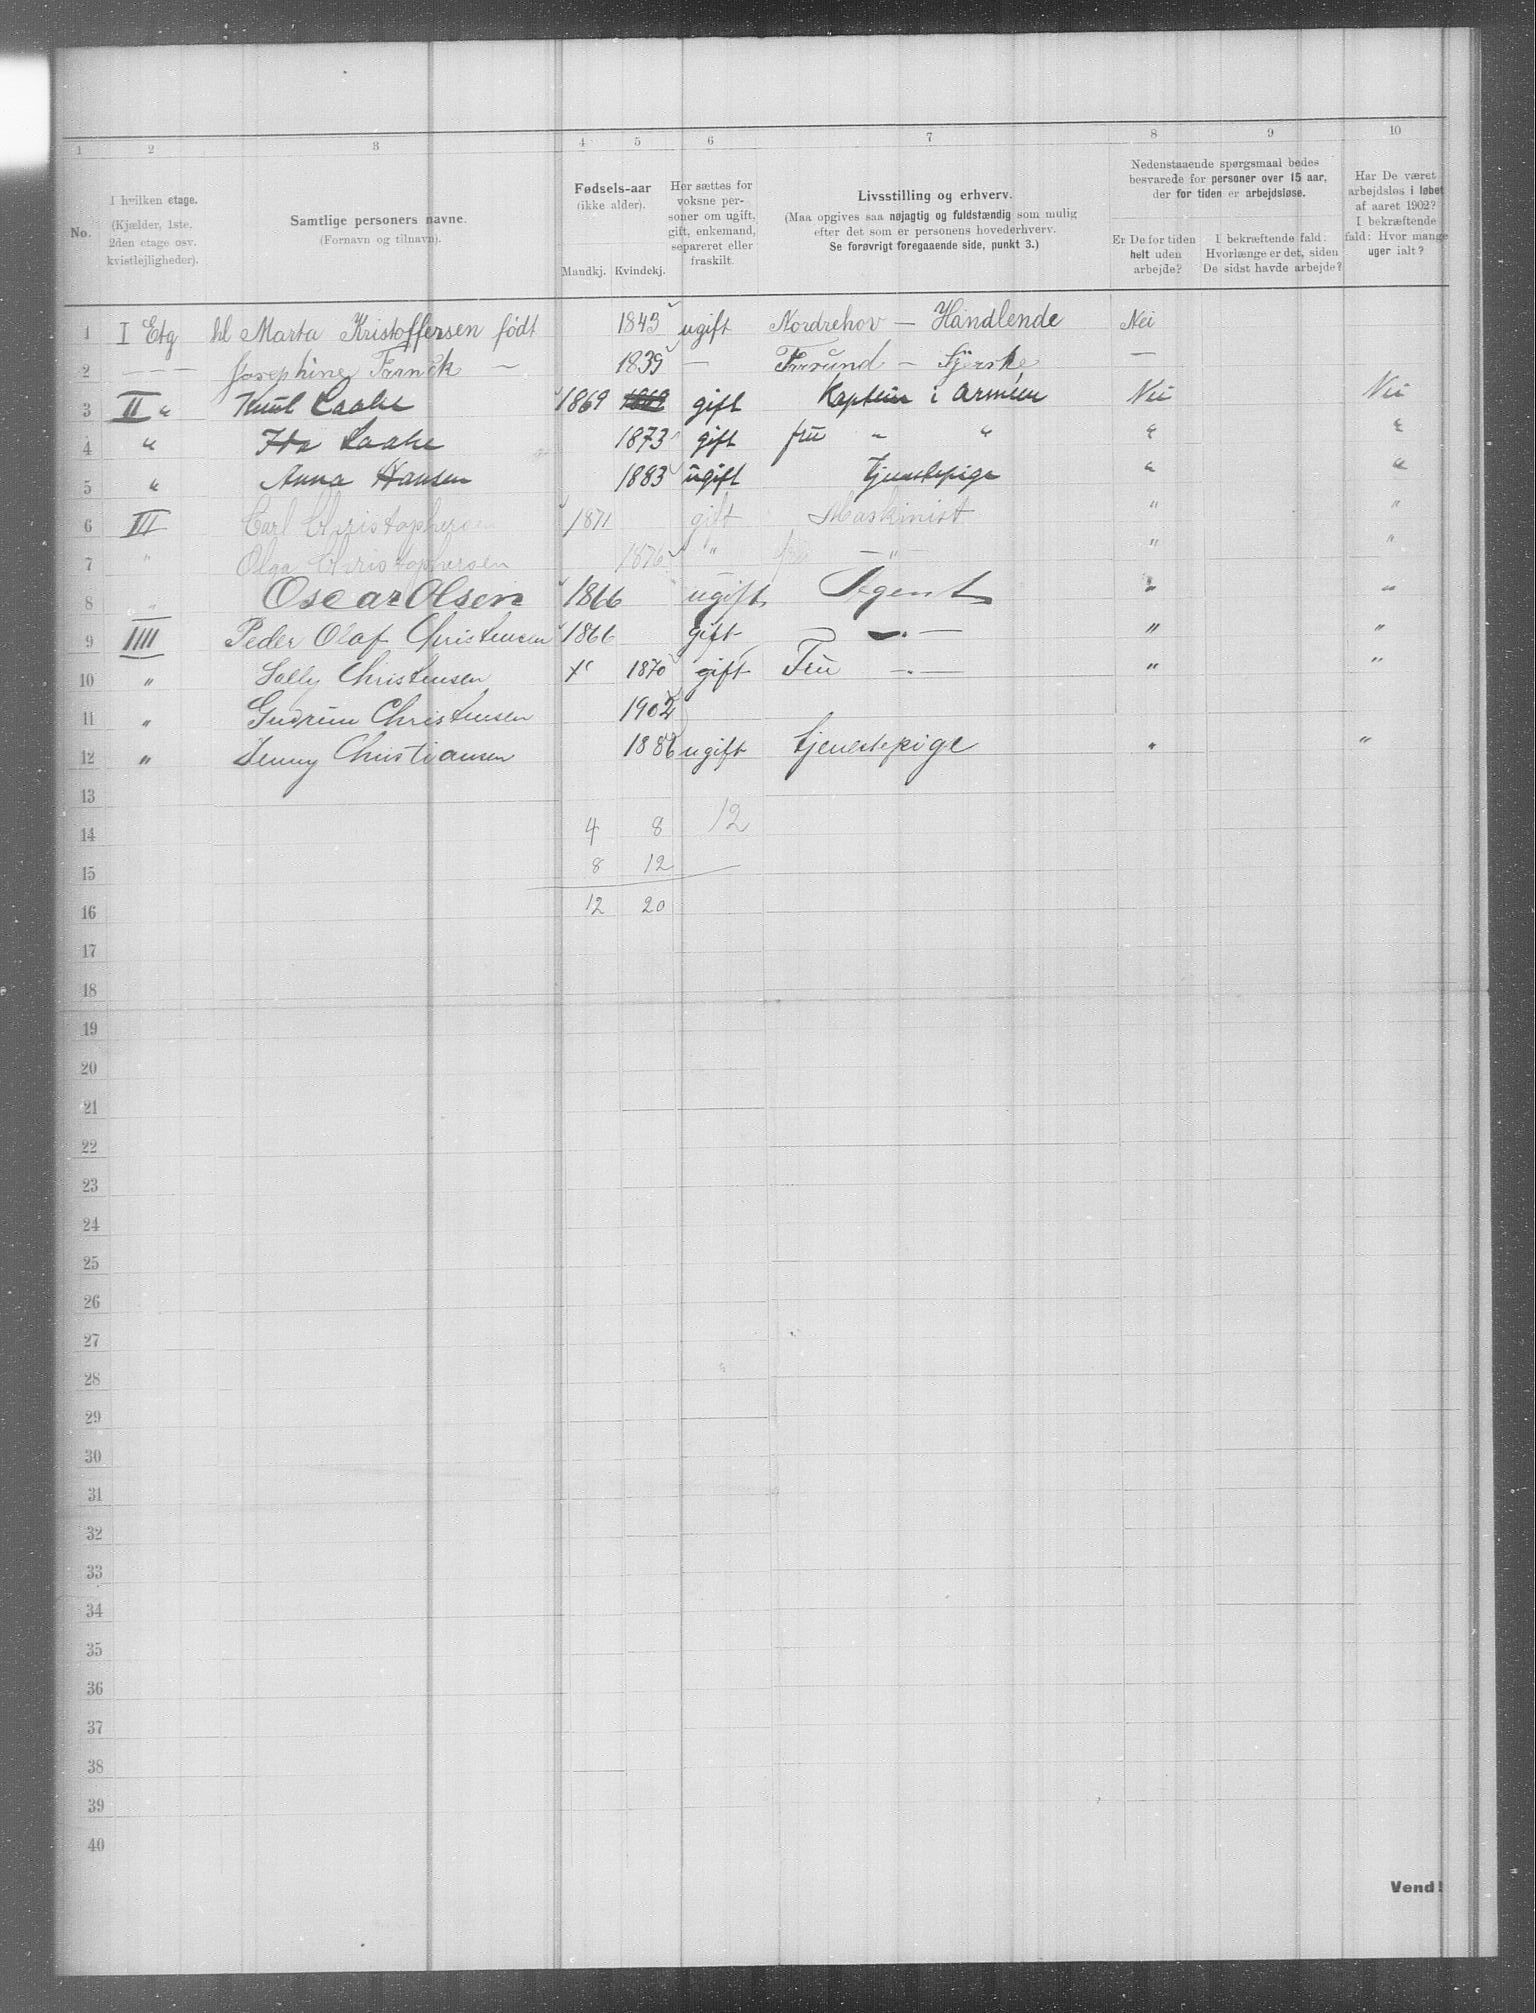 1 2 3 4 5 6 7 8 9 10
No.
I hvilken etage.
(Kjælder, 1ste.
2den etage osv.
kvistlejligheder).
Samtlige personers navne.
(Fornavn og tilnavn).
Fødsels-aar
(ikke alder).
Mandkj. Kvindekj.
Her sættes for
voksne per-
soner om ugift,
gift, enkemand,
separeret eller
fraskilt.
Livsstilling og erhverv.
(Maa opgives saa nøjagtig og fuldstændig som mulig
efter det som er personens hovederhverv.
Se forøvrigt foregaaende side, punkt 3.)
Nedenstaaende spørgsmaal bedes
besvarede for personer over 15 aar,
der for tiden er arbejdsløse.
Er De for tiden
helt uden
arbejde?
I bekræftende fald:
Hvorlænge er det, siden
De sidst havde arbejde?
Har De været
arbejdsløs i løbet
af aaret 1902?
I bekræftende
fald: Hvor mange
uger ialt?
1 I Etg Marta Kristoffersen født 1843 ugift Nordrehov — Handlende Nei
2 — — — Josephine — 1839 — — —
3 II " Knut Laake 1869 1869 gift Kaptein i Armeen Nei Nei
4 " Ida Laake 1873 gift fru " " " "
5 " Anna Hansen 1883 ugift Tjenestepige " "
6 III Carl Christophersen 1871 gift Maskinist " "
7 " Olga Christophersen 1876 " fru — " — " "
8 " Oscar Olsen 1866 ugift Agent " "
9 IIII Peder Olaf Christensen 1866 gift — " — " "
10 " Solly Christensen 1870 gift Fru — " — " "
11 " Gudrun Christensen 1902
12 " Jenny Christiansen 1886 ugift tjenestepige " "
13
14 4 8 12
15 8 12
16 12 20
17
18
19
20
21
22
23
24
25
26
27
28
29
30
31
32
33
34
35
36
37
38
39
40
Vend!